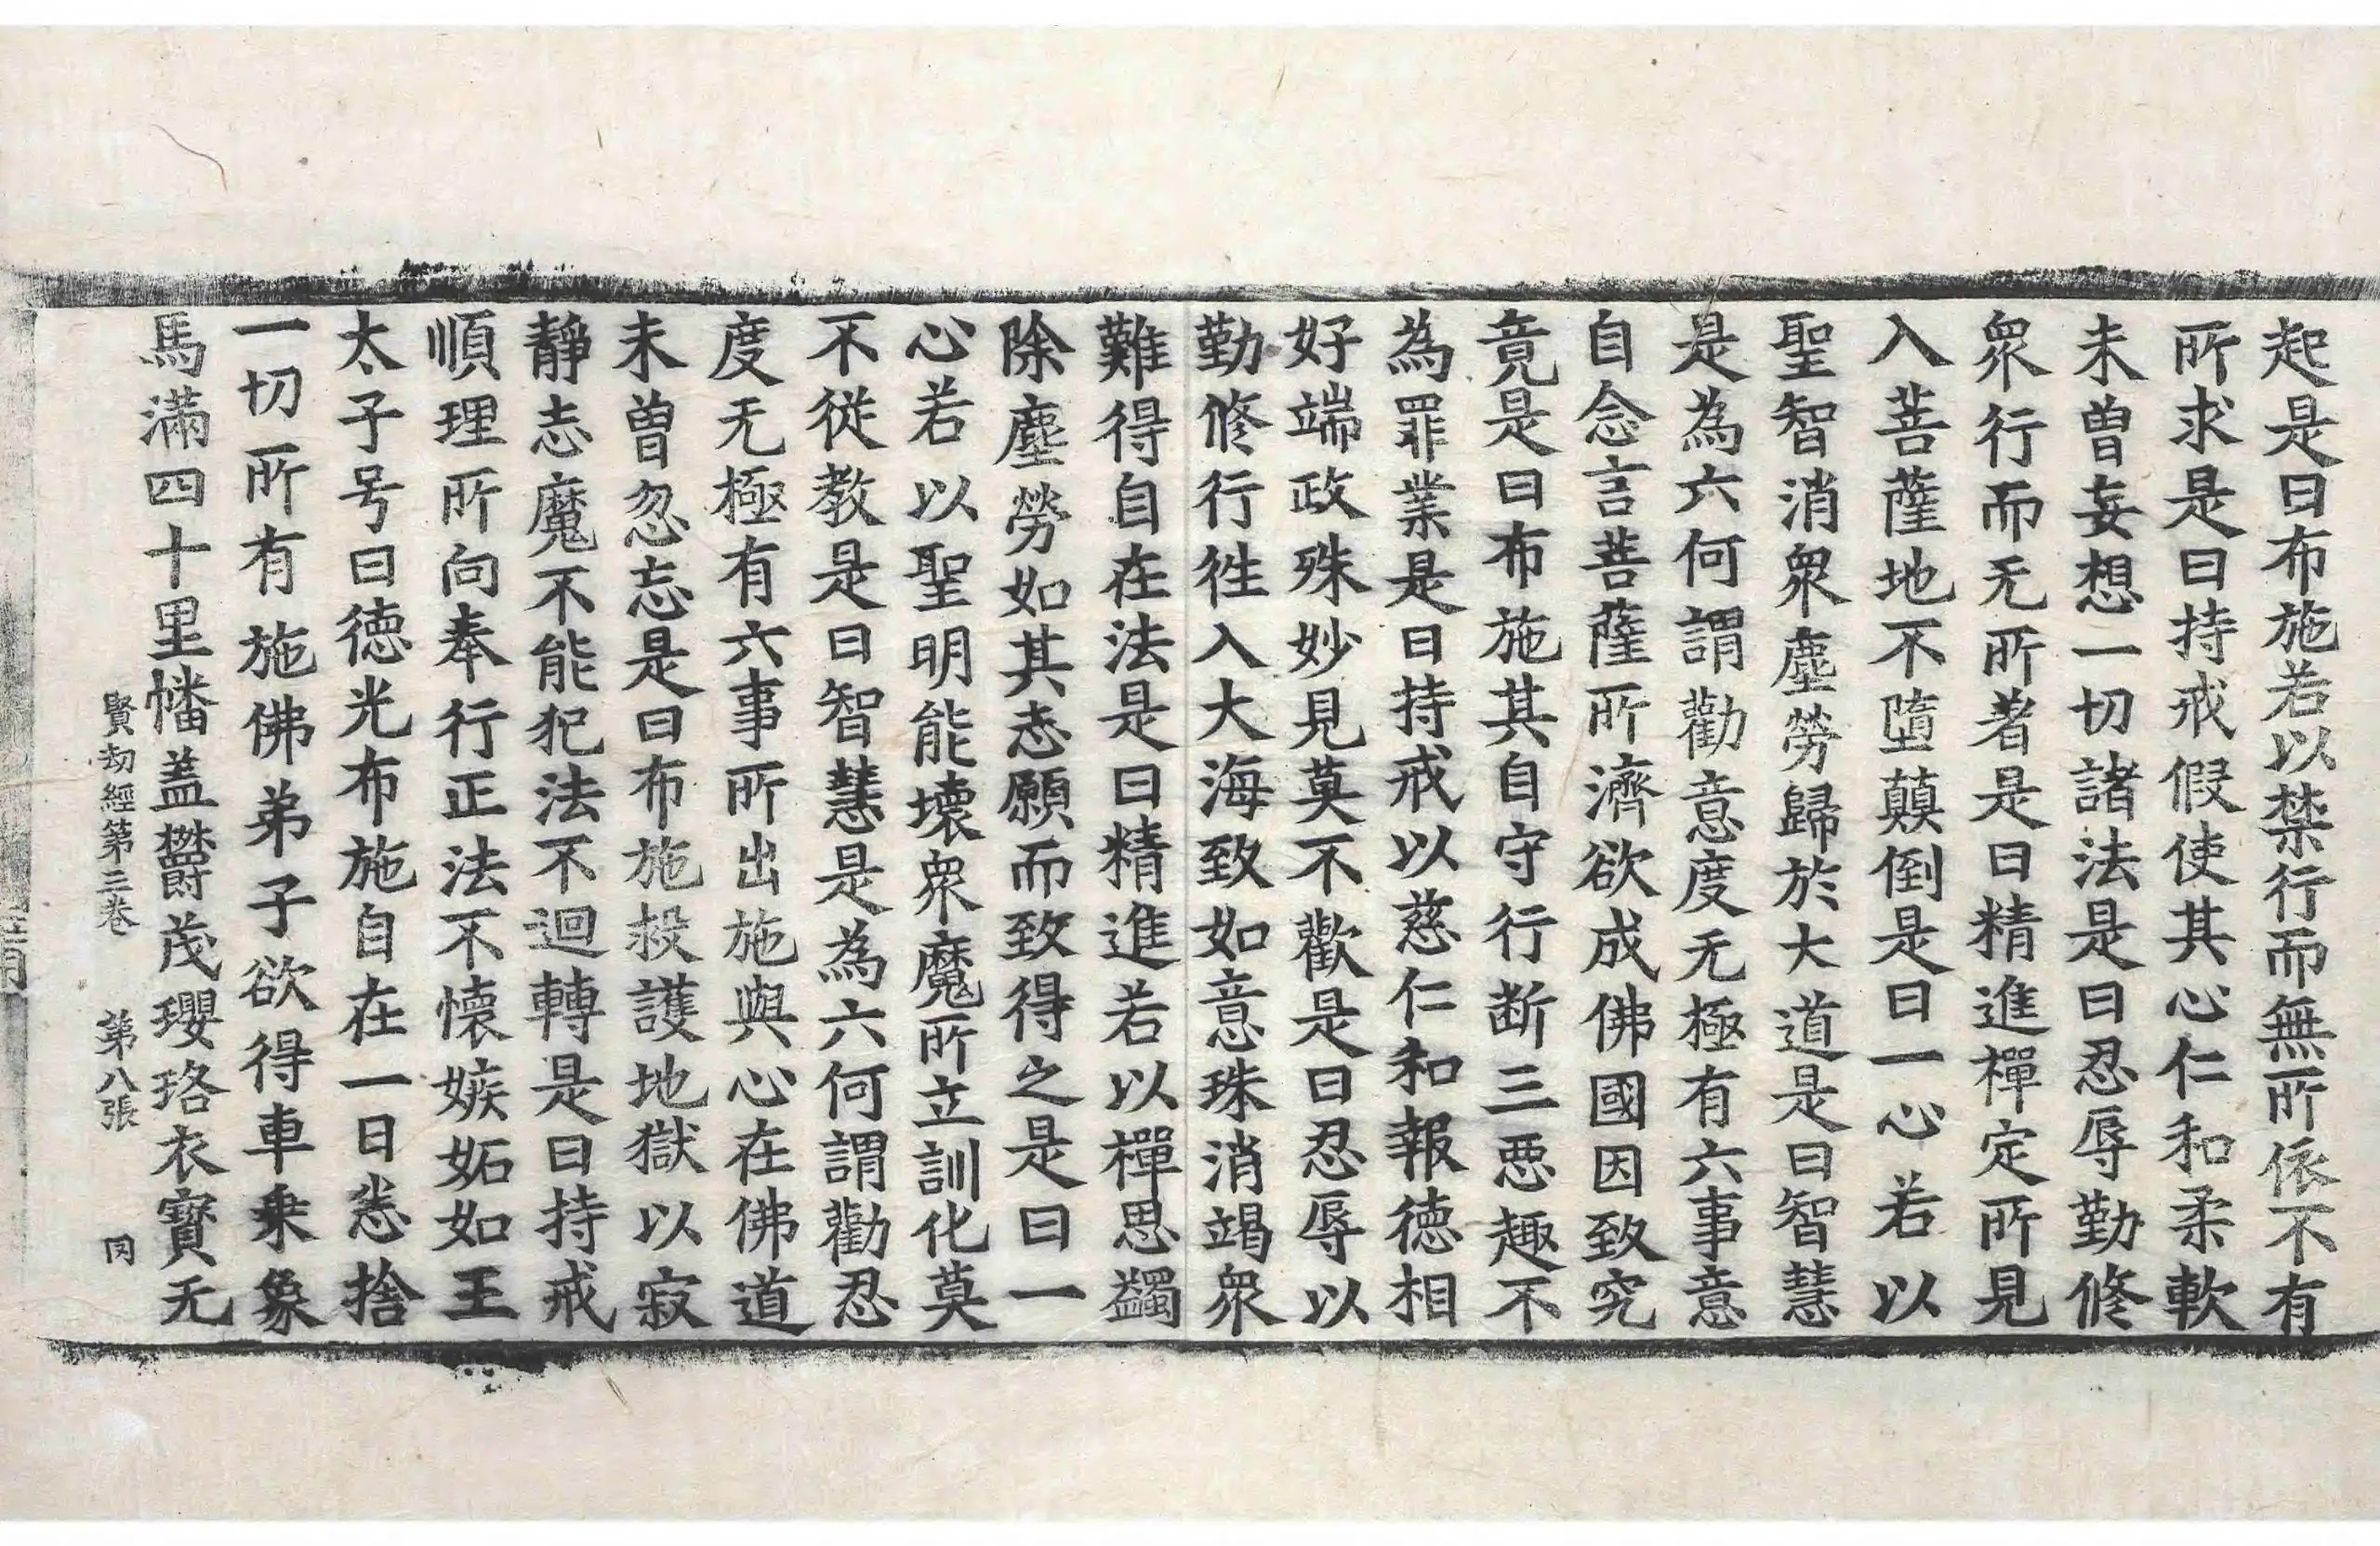 起是曰布施若以禁行而無所依不有
所求是曰持戒假使其心仁和柔軟
未曾妄想一切諸法是曰忍辱勤修
衆行而无所著是曰精進禪定所見
入菩薩地不墮顛倒是曰一心若以
聖智消衆塵勞歸於大道是曰智慧
是為六何謂勸意度无極有六事意
自念言菩薩所濟欲成佛國因致究
竟是曰布施其自守行断三惡趣不
為罪業是曰持戒以慈仁和報德相
好端政殊妙見莫不歡是曰忍辱以
勤修行往入大海致如意珠消竭衆
難得自在法是曰精進若以禪思蠲
除塵勞如其志願而致得之是曰一
心若以聖明能壞衆魔所立訓化莫
不從教是曰智慧是為六何謂勸忍
度无極有六事所出施與心在佛道
未曾忽忘是曰布施投護地獄以寂
靜志魔不能犯法不迴轉是曰持戒
順理所向奉行正法不懷嫉妬如王
太子号曰德光布施自在一日悉捨
一切所有施佛弟子欲得車乗象
馬滿四十里幡盖欝茂瓔珞衣寳无
賢劫經第三卷 第八張 同